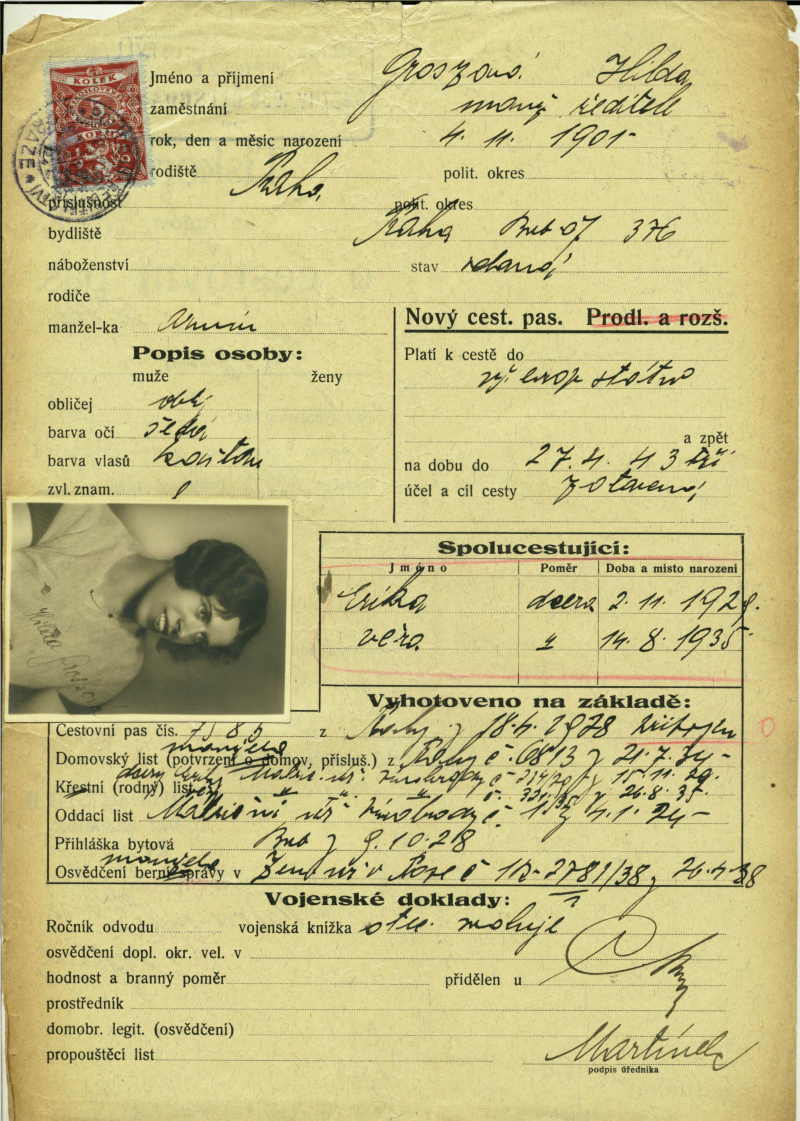 KOLEK
5
Jméno a příjmení Groszová Hilda
zaměstnání manž ředitele
rok, den a měsíc narození 4. 11. 1901
rodiště Praha polit. okres
příslušnost polit. okres
bydliště Praha Bub 376
náboženství stav vdaná
rodiče
manžel-ka Armin
Nový cest. pas. Prodl. a rozš.
Popis osoby:
muže ženy
Platí k cestě do
vš evrop států
obličej obl
barva očí šedé
barva vlasů kaštan
zvl. znam.
a zpět
na dobu do 27. 4. 43 tří
účel a cíl cesty zotavení
Spolucestující:
Jméno Poměr Doba a místo narození
Erika dcera 2. 11. 1929.
Věra " 14. 8. 1935
Hilda Grosz
Vyhotoveno na základě:
Cestovní pas čís. 7585 z Prahy z 18. 4. 1928
manžela
Domovský list (potvrzení o domov, přísluš.) z Prahy č. 6813 z 21. 7. 34
Křestní (rodný) list
Oddací list Matriční úř Vinohrady č. 1 z 4. 1. 24
Přihláška bytová Bub z 9. 10. 28
manžela
Osvědčení berní správy v Praze č 2781/38 z 26. 4. 38
Vojenské doklady:
Ročník odvodu vojenská knížka otec svoluje
osvědčení dopl. okr. vel. v
hodnost a branný poměr přidělen u
prostředník
domobr. legit. (osvědčení)
propouštěcí list
Martínek
podpis úředníka